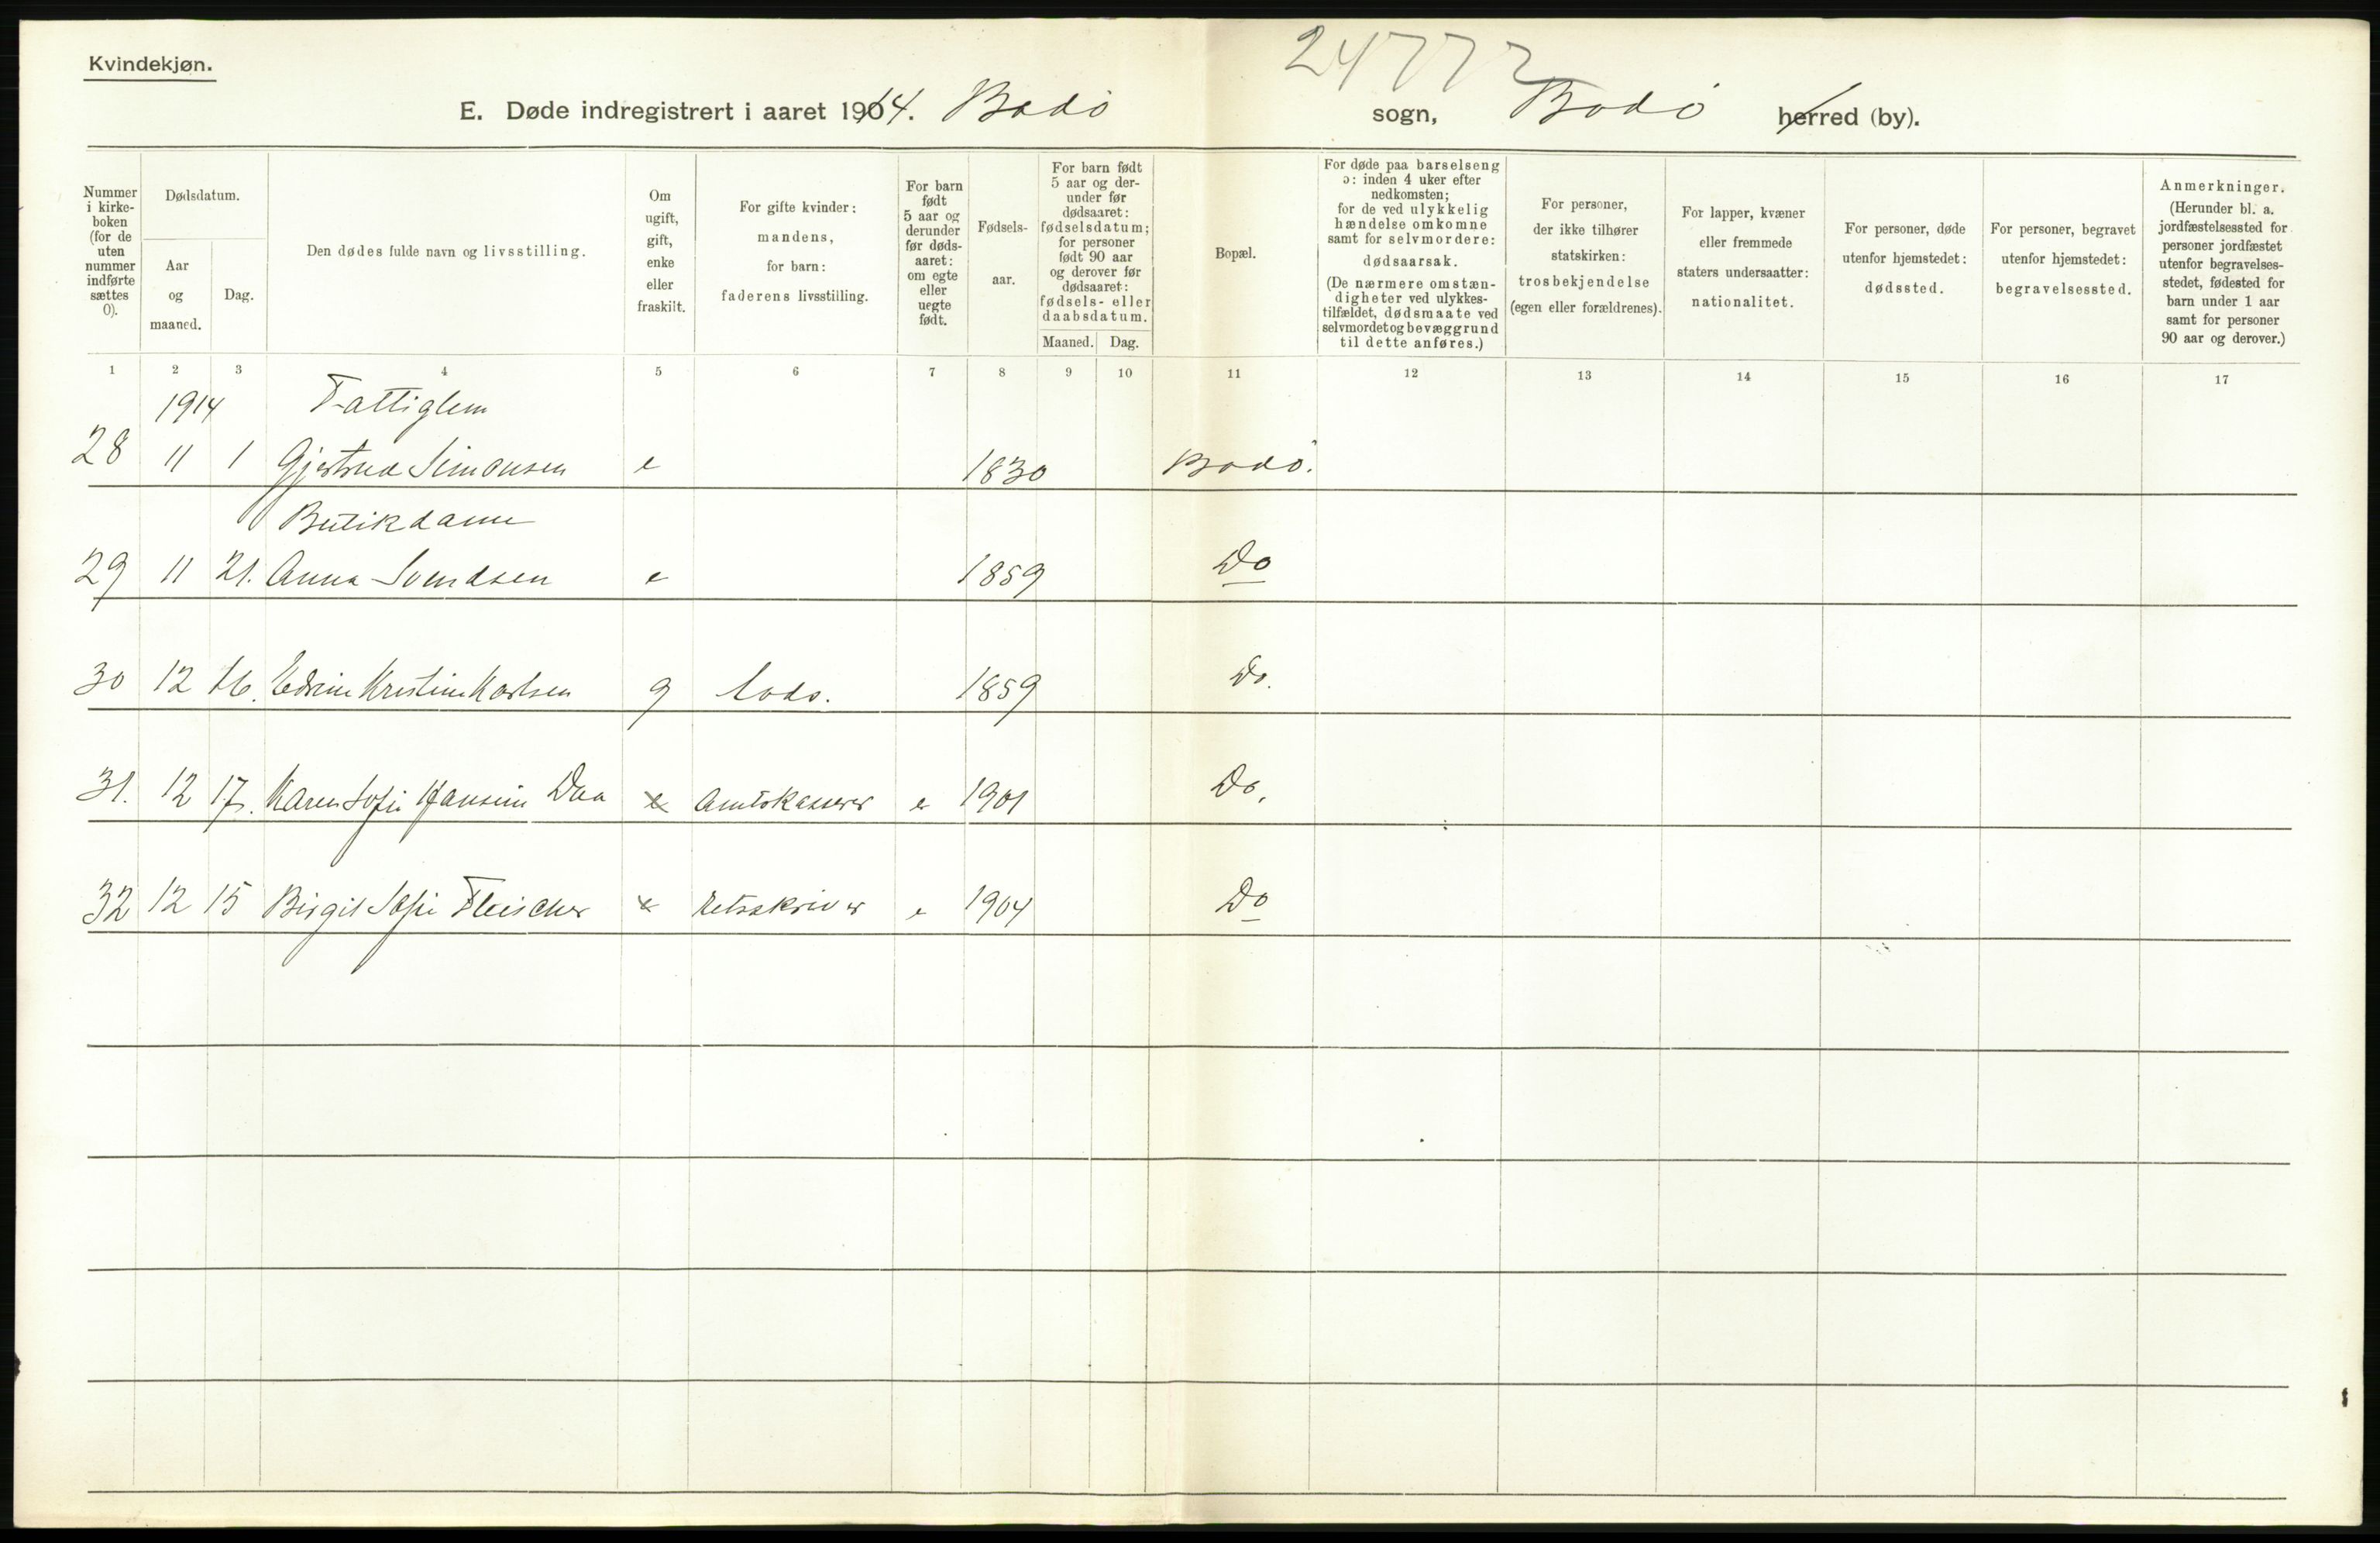 24772
Kvindekjøn.
E. Døde indregistrert i aaret 1914. Bodø sogn, Bodø herred (by).
Nummer i kirke-boken (for de uten nummer indførte sættes 0).
Dødsdatum.
Aar og maaned.
Dag.
Den dødes fulde navn og livsstilling.
Om ugift, gift, enke eller fraskilt.
For gifte kvinder: mandens, for barn: faderens livsstilling.
For barn født 5 aar og derunder før døds-aaret: om egte eller uegte født.
Fødsels-aar.
For barn født 5 aar og der-under før dødsaaret: fødselsdatum; for personer født 90 aar og derover før dødsaaret: fødsels- eller daabsdatum.
Maaned. Dag.
Bopæl.
For døde paa barselseng ɔ: inden 4 uker efter nedkomsten; for de ved ulykkelig hændelse omkomne samt for selvmordere: dødsaarsak. (De nærmere omstæn-digheter ved ulykkes-tilfældet, dødsmaate ved selvmordet og bevæggrund til dette anføres.)
For personer, der ikke tilhører statskirken: trosbekjendelse (egen eller forældrenes).
For lapper, kvæner eller fremmede staters undersaatter: nationalitet.
For personer, døde utenfor hjemstedet: dødssted.
For personer, begravet utenfor hjemstedet: begravelsessted.
Anmerkninger. (Herunder bl. a. jordfæstelsessted for personer jordfæstet utenfor begravelses-stedet, fødested for barn under 1 aar samt for personer 90 aar og derover.)
1 2 3 4 5 6 7 8 9 10 11 12 13 14 15 16 17
1914 Fattiglem
28 11 1 Gjertrud Simonsen e 1830 Bodø.
Butikdame
29 11 21. Anna Svendsen e 1859 Do
30 12 16. Kristine Karlsen g Lods. 1859 Do.
31. 12 17. Karen Sofie Hansine Daa e Amtskasserer e 1901 Do.
32 12 15 Birgit Sofie Fleischer e retsskriver e 1904 Do